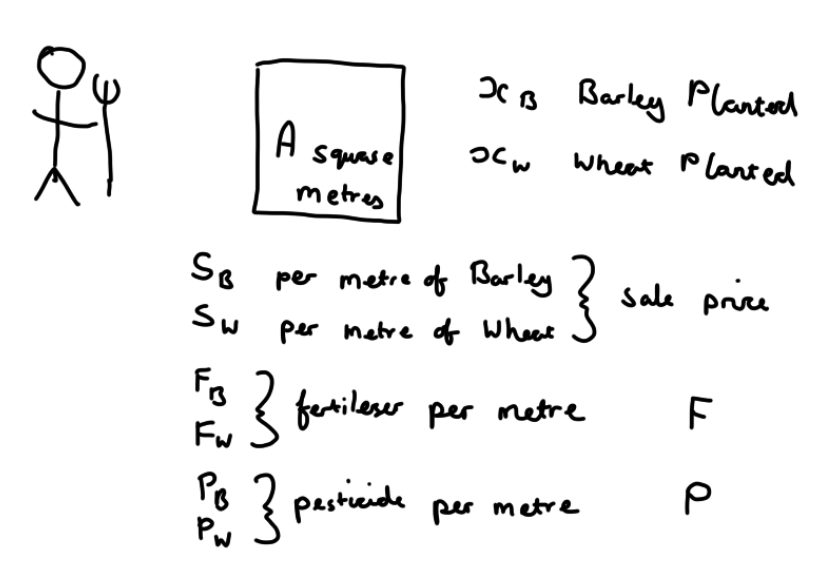 x_B Barley Planted
A square metres
x_W Wheat Planted
S_B per metre of Barley
S_W per metre of Wheat
} sale price
F_B
F_W
} fertileser per metre F
P_B
P_W
} pesticide per metre P